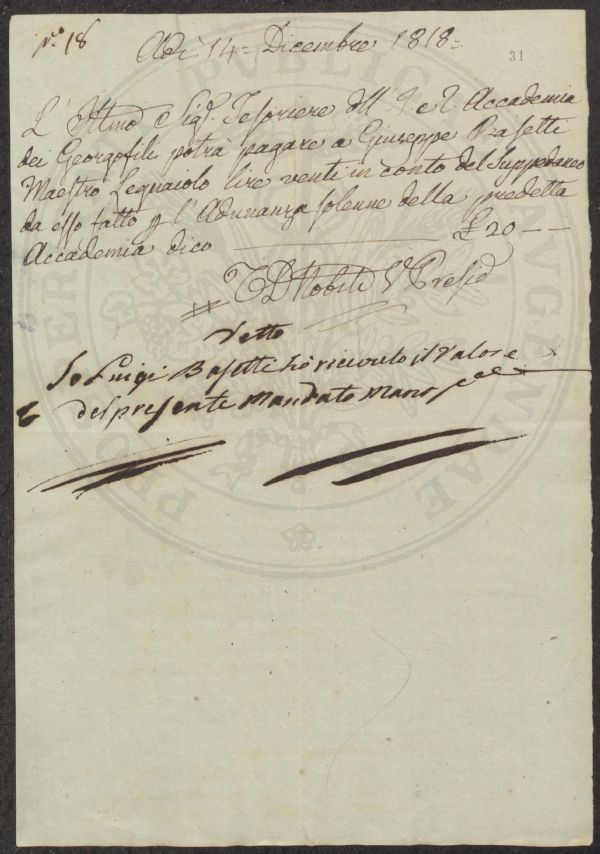 N.º 18
Adì 14 = Dicembre 1818 =
31
L'Illmo Sig.r Tesoriere dell' I e R Accademia
dei Georgofili potrà pagare a Giuseppe Basetti
Maestro Legnaiolo lire venti in conto del Suppedaneo
da esso fatto p l'Adunanza solenne della predetta
Accademia dico £ 20 — —
T D Nobili V Presid
Detto
Io Luigi Basetti ho ricevuto il Valore
del presente Mandato Mano pp.a
PUBLICA
AUGENDAE
PRO